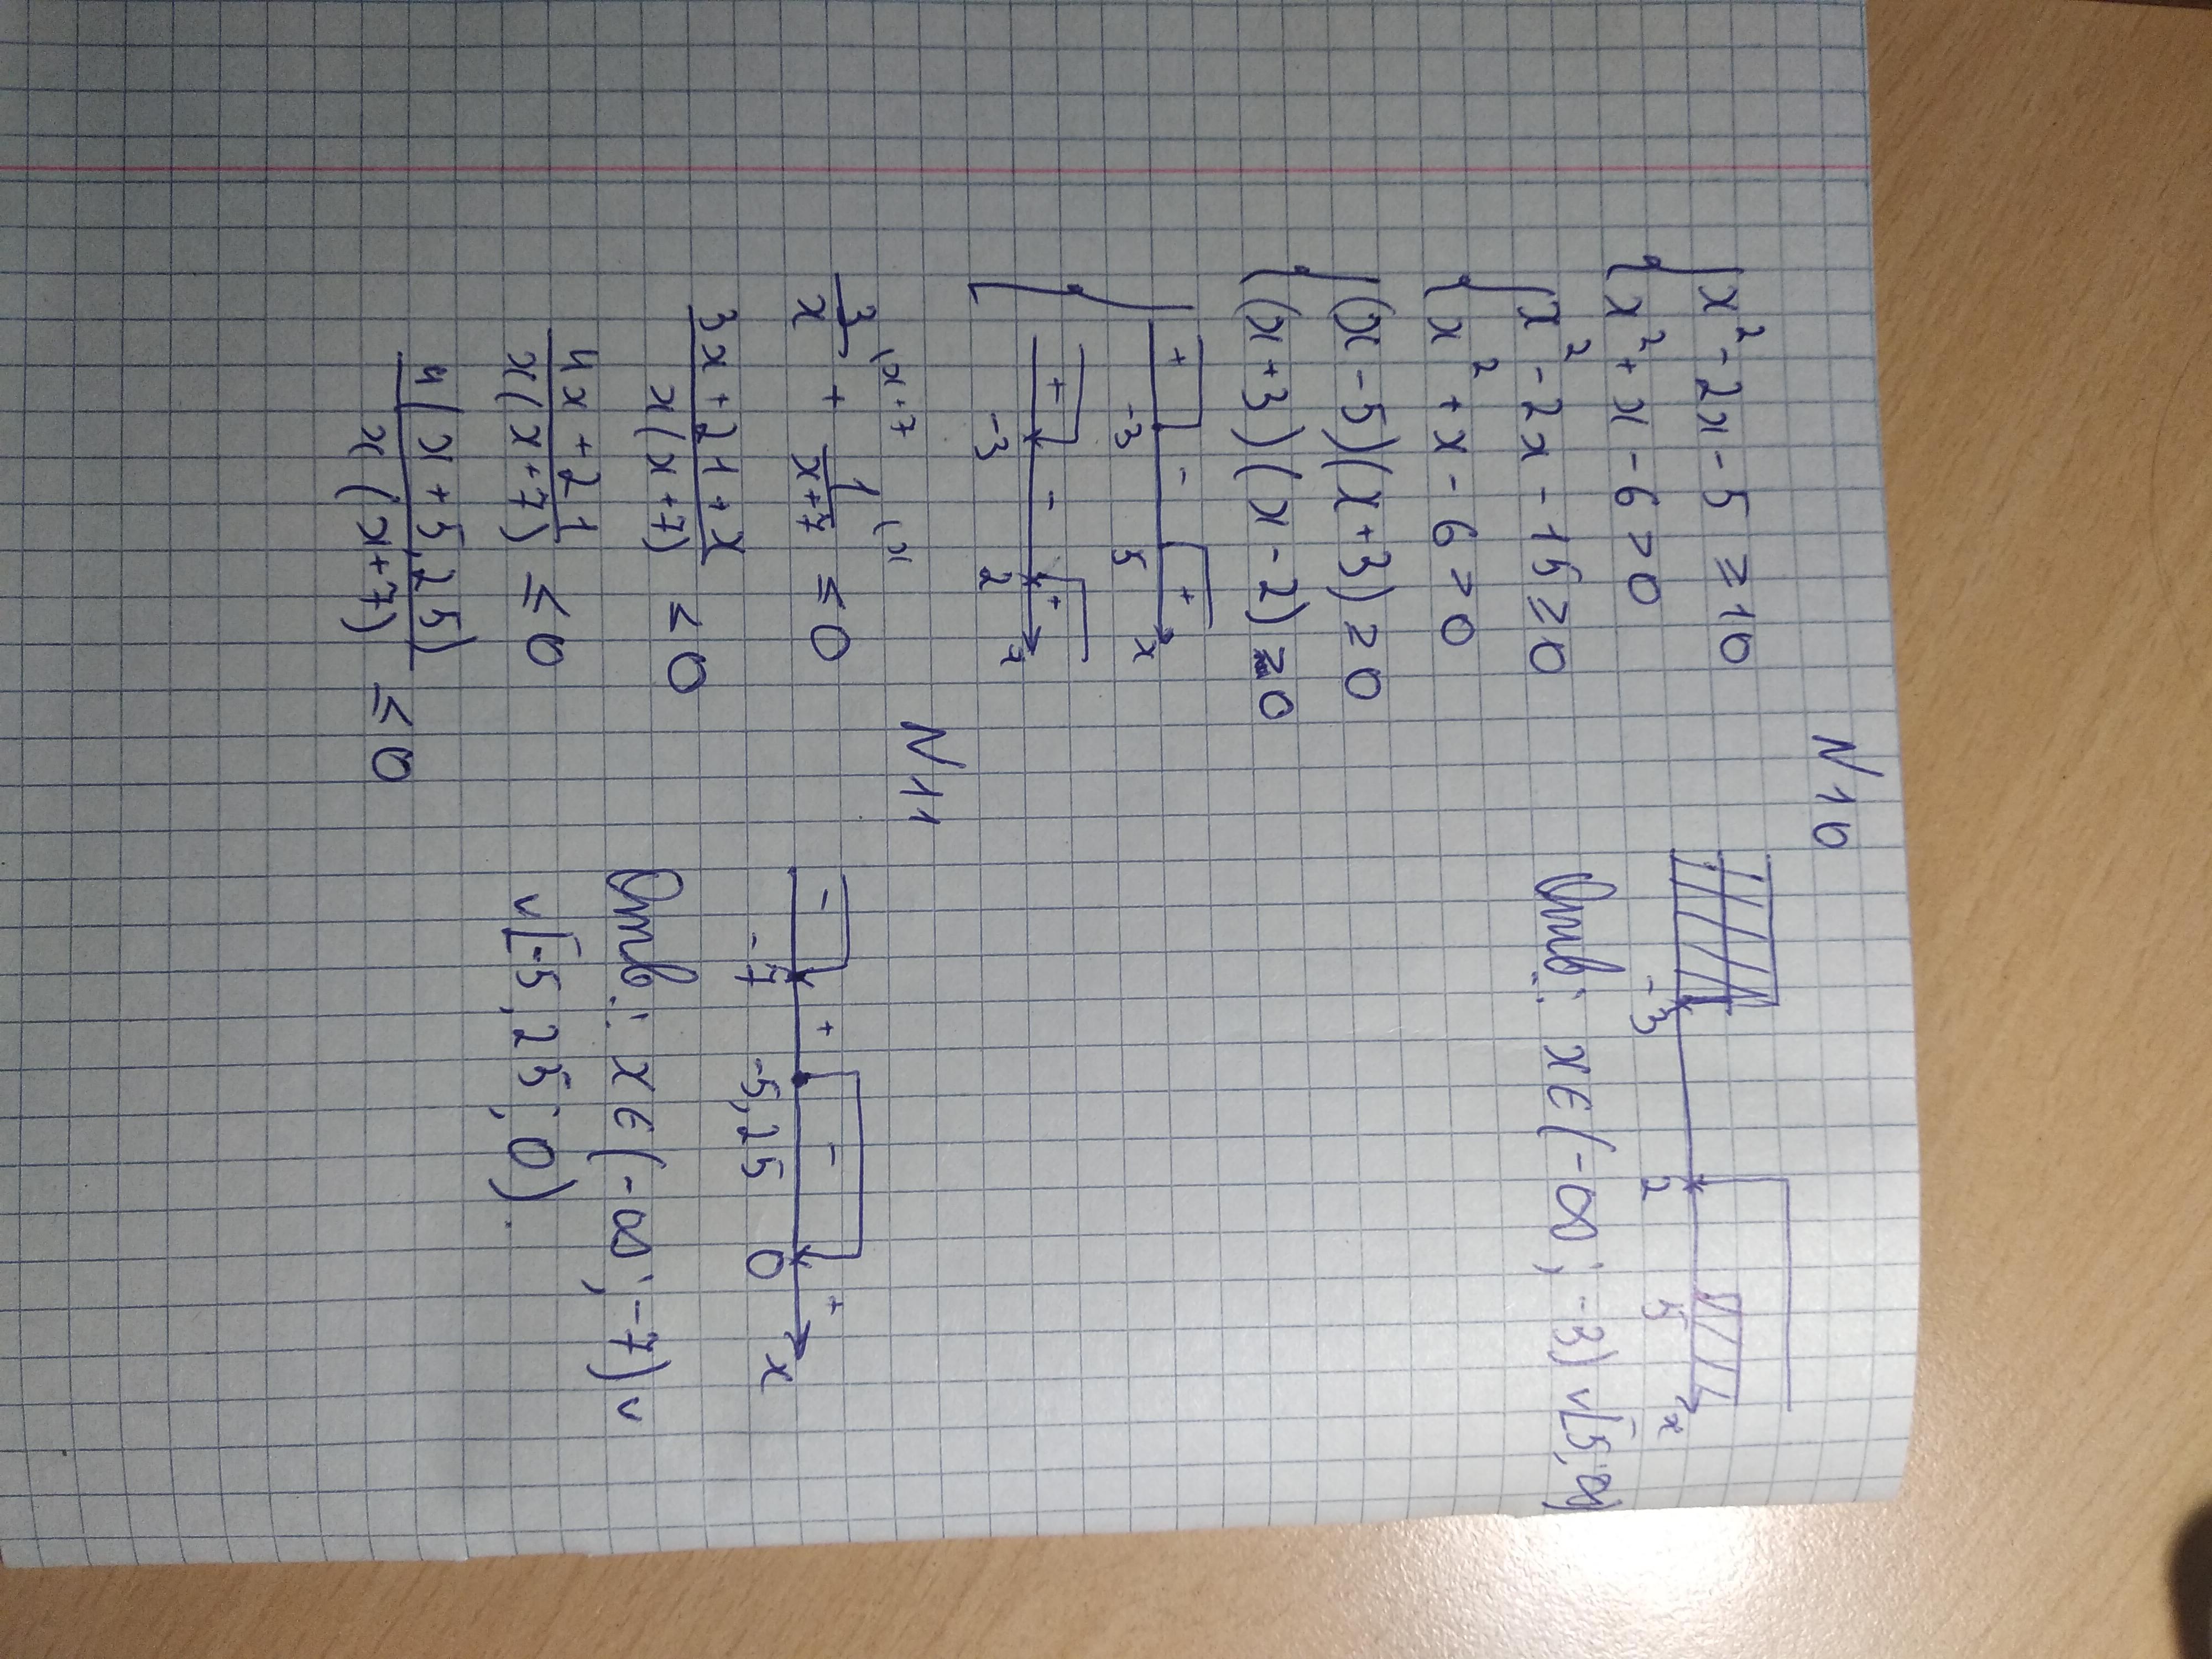 N10
{x² - 2x - 5 ≥ 10
{x² + x - 6 > 0
{x² - 2x - 15 ≥ 0
{x² + x - 6 > 0
{(x - 5)(x + 3) ≥ 0
{(x + 3)(x - 2) ≥ 0
+ - + x
-3 5
+ - + x
-3 2
-3 2 5 x
Ответ: x∈(-∞; -3) ∪ [5; ∞)
N11
3/x |x+7 + 1/(x+7) |x ≤ 0
(3x + 21 + x)/(x(x+7)) ≤ 0
(4x + 21)/(x(x+7)) ≤ 0
4(x + 5,25)/(x(x+7)) ≤ 0
- + - +
-7 -5,25 0 x
Ответ: x∈(-∞; -7) ∪
∪[-5,25; 0).